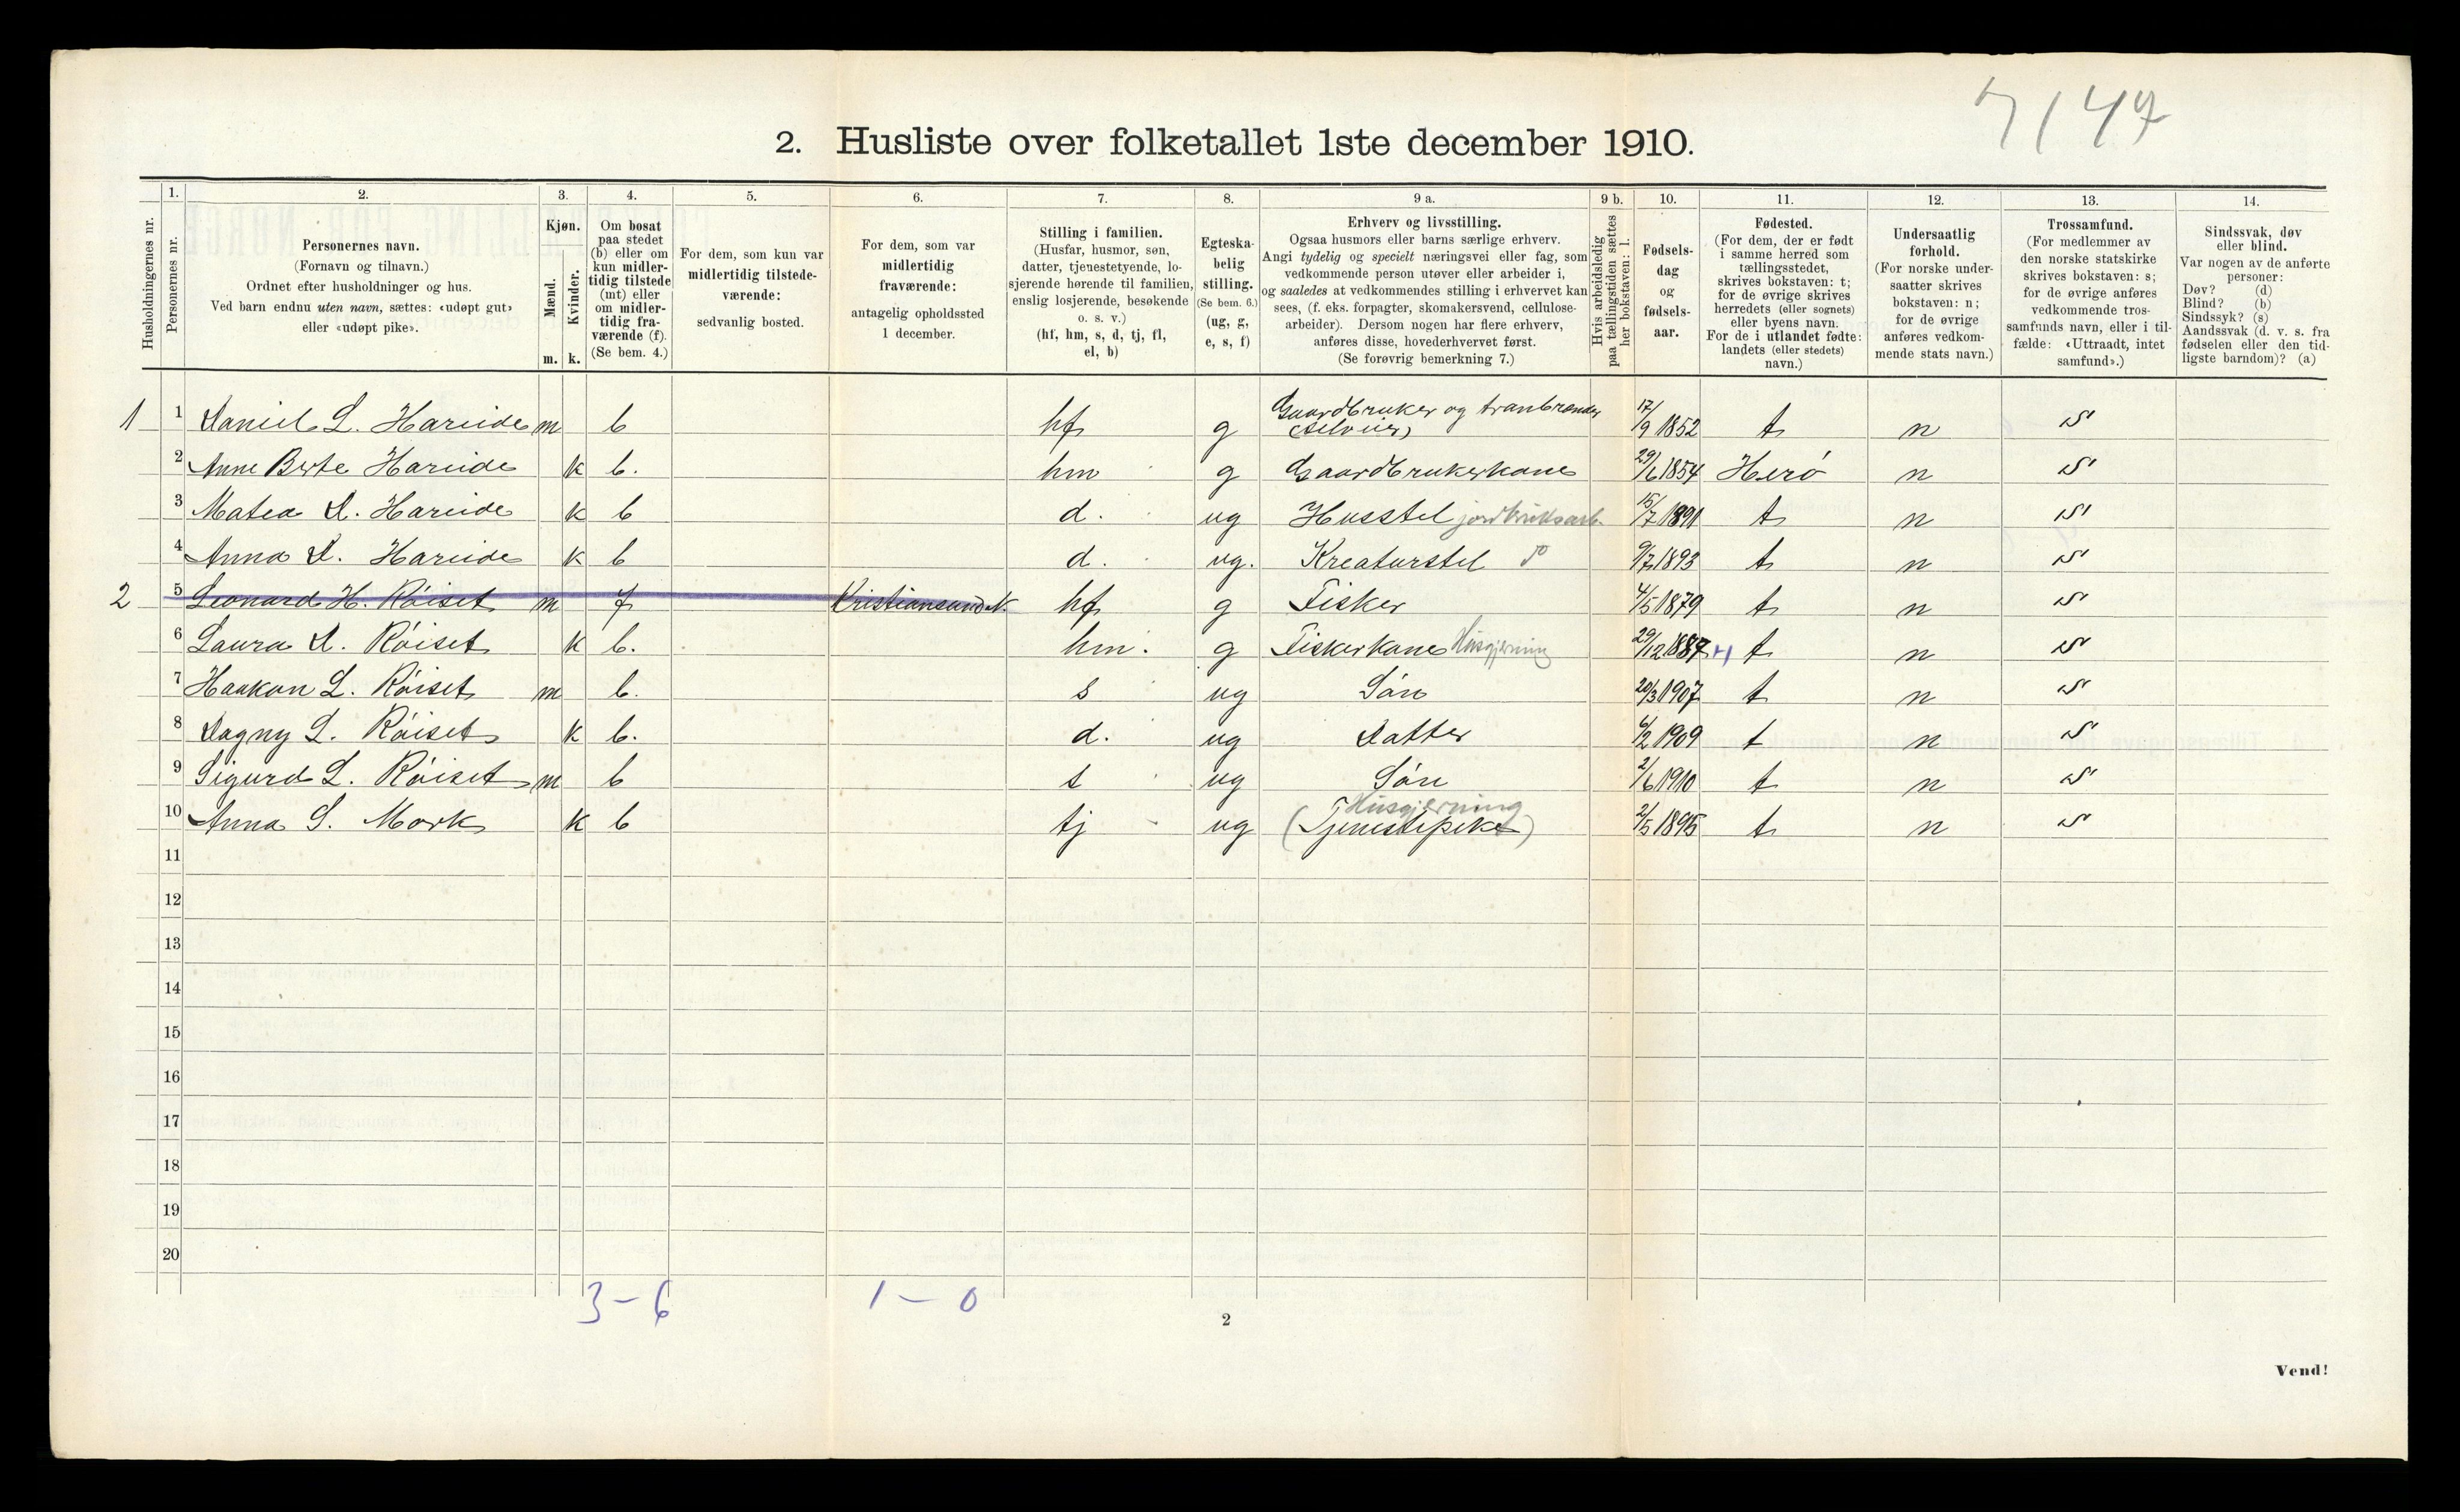 7147
2. Husliste over folketallet 1ste december 1910.
Husholdningernes nr.
1.
Personernes nr.
2.
Personernes navn.
(Fornavn og tilnavn.)
Ordnet efter husholdninger og hus.
Ved barn endnu uten navn, sættes: «udøpt gut»
eller «udøpt pike».
3.
Kjøn.
Mænd.
Kvinder.
m. k.
4.
Om bosat
paa stedet
(b) eller om
kun midler-
tidig tilstede
(mt) eller
om midler-
tidig fra-
værende (f).
(Se bem. 4.)
5.
For dem, som kun var
midlertidig tilstede-
værende:
sedvanlig bosted.
6.
For dem, som var
midlertidig
fraværende:
antagelig opholdssted
1 december.
7.
Stilling i familien.
(Husfar, husmor, søn,
datter, tjenestetyende, lo-
sjerende hørende til familien,
enslig losjerende, besøkende
o. s. v.)
(hf, hm, s, d, tj, fl,
el, b)
8.
Egteska-
belig
stilling.
(Se bem. 6.)
(ug, g,
e, s, f)
9 a.
Erhverv og livsstilling.
Ogsaa husmors eller barns særlige erhverv.
Angi tydelig og specielt næringsvei eller fag, som
vedkommende person utøver eller arbeider i,
og saaledes at vedkommendes stilling i erhvervet kan
sees, (f. eks. forpagter, skomakersvend, cellulose-
arbeider). Dersom nogen har flere erhverv,
anføres disse, hovederhvervet først.
(Se forøvrig bemerkning 7.)
9 b.
Hvis arbeidsledig
paa tællingstiden sættes
her bokstaven: l.
10.
Fødsels-
dag
og
fødsels-
aar.
11.
Fødested.
(For dem, der er født
i samme herred som
tællingsstedet,
skrives bokstaven: t;
for de øvrige skrives
herredets (eller sognets)
eller byens navn.
For de i utlandet fødte:
landets (eller stedets)
navn.)
12.
Undersaatlig
forhold.
(For norske under-
saatter skrives
bokstaven: n;
for de øvrige
anføres vedkom-
mende stats navn.)
13.
Trossamfund.
(For medlemmer av
den norske statskirke
skrives bokstaven: s;
for de øvrige anføres
vedkommende tros-
samfunds navn, eller i til-
fælde: «Uttraadt, intet
samfund».)
14.
Sindssvak, døv
eller blind.
Var nogen av de anførte
personer:
Døv? (d)
Blind? (b)
Sindssyk? (s)
Aandssvak (d. v. s. fra
fødselen eller den tid-
ligste barndom)? (a)
1 1 Daniel L. Hareide m b hf g Gaardbruker og tranbrænder (selveier) 17/9 1852 t n s
2 Anne Berte Hareide k b. hm g Gaardbrukerkone 29/6 1854 Herö n s
3 Matea D. Hareide k b d. ug Husstel jordbruksarb. 15/7 1891 t n s
4 Anna D. Hareide k b d. ug. Kreaturstel do 9/7 1893 t n s
2 5 Leonard H. Röiset m f Kristiansund N. hf g Fisker 4/5 1879 t n s
6 Laura D. Röiset k b. hm. g Fiskerkone Husgjerning 29/12 1887 t n s
7 Haakon L. Röiset m b. s ug Sön 20/3 1907 t n s
8 Dagny L. Röiset k b. d. ug Datter 6/2 1909 t n s
9 Sigurd L. Röiset m b s ug Sön 2/6 1910 t n s
10 Anna S. Mork k b tj ug Husgjerning (Tjenestepike) 2/5 1895 t n s
11
12
13
14
15
16
17
18
19
20
3 - 6 1 - 0
2
Vend!